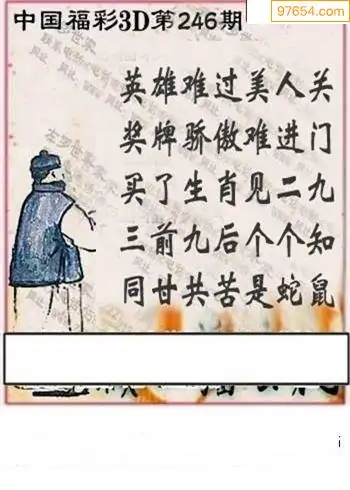 中国福彩3D第246期
97654.com
英雄难过美人关
奖牌骄傲难进门
买了生肖见二九
三前九后个个知
同甘共苦是蛇鼠
i